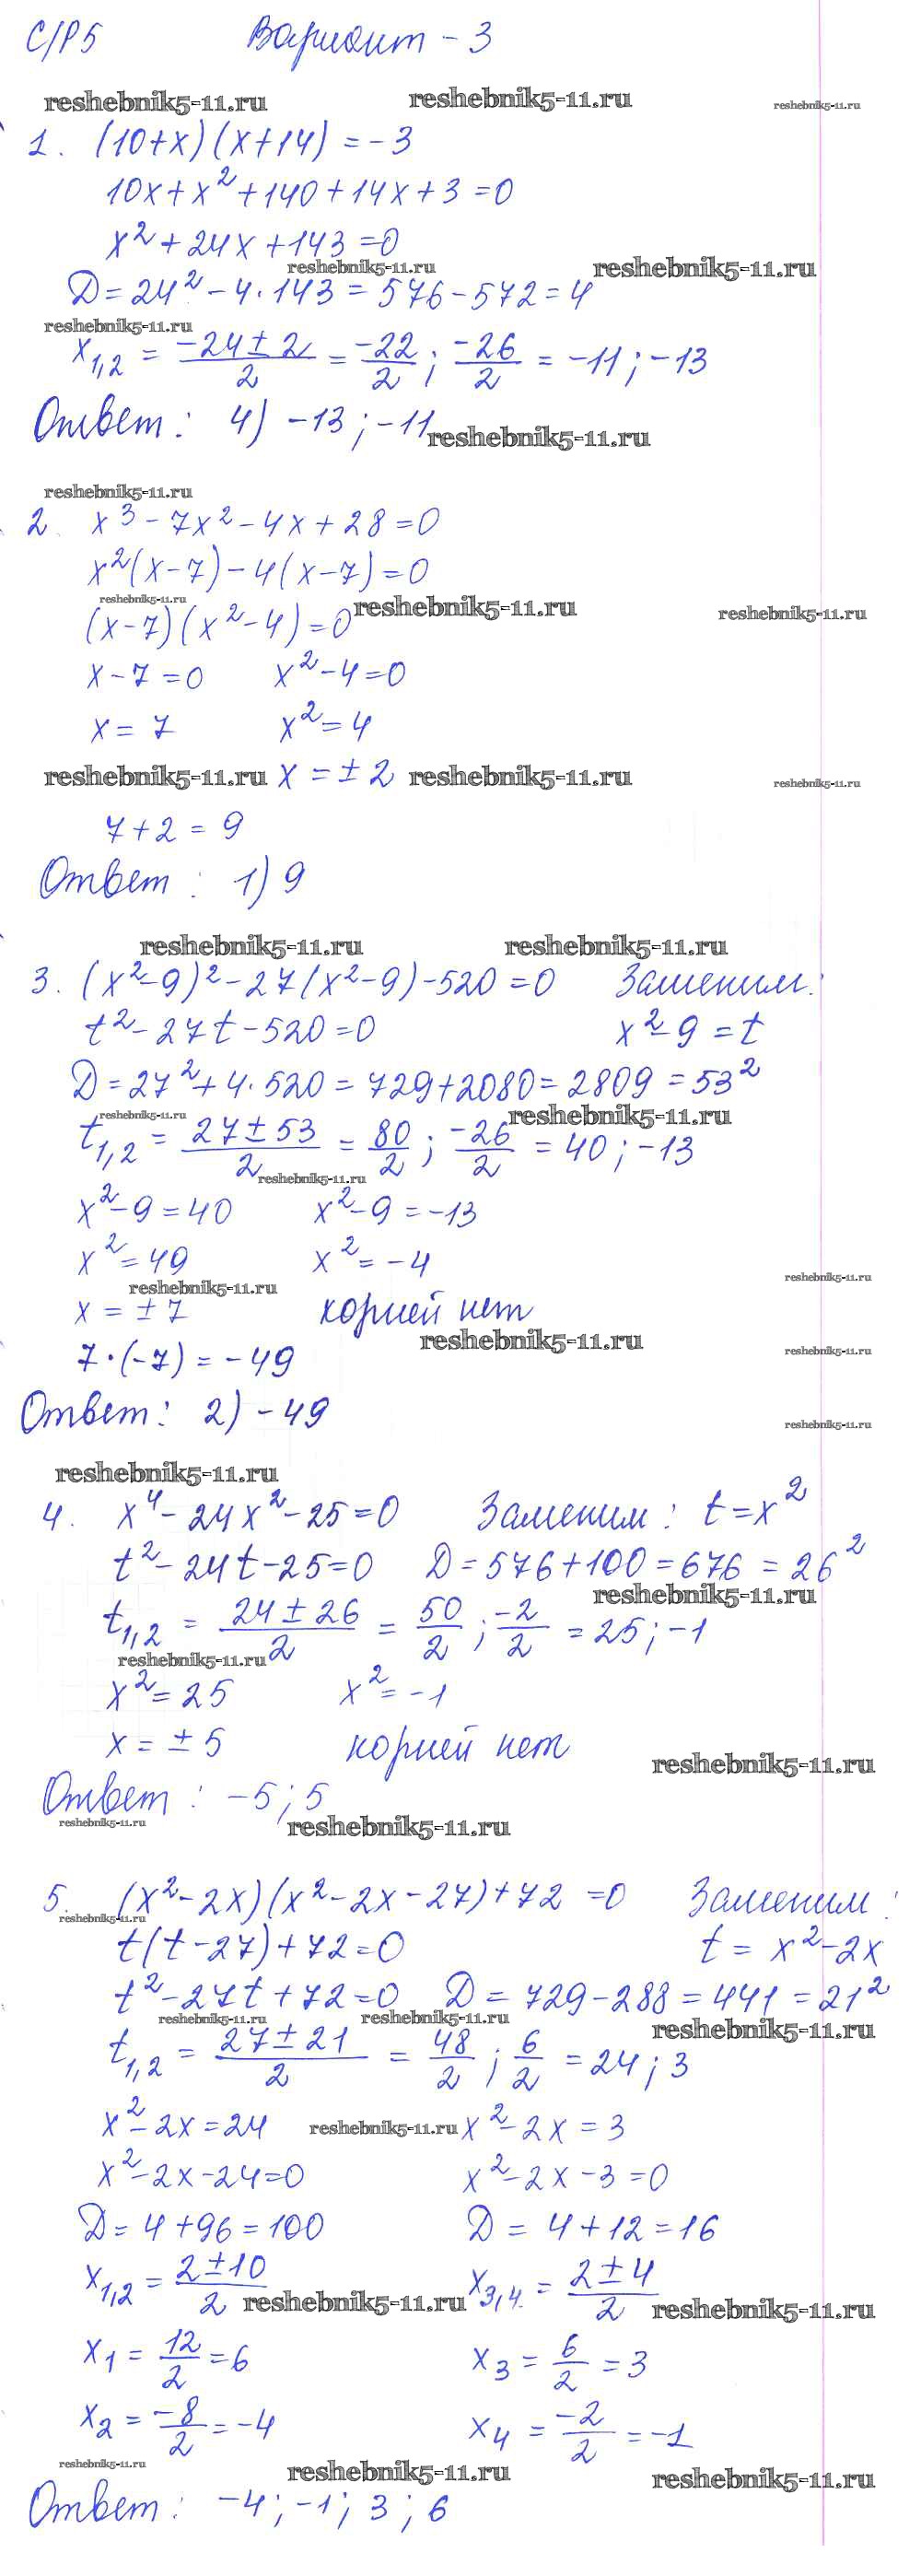 С/Р5 Вариант - 3
reshebnik5-11.ru reshebnik5-11.ru reshebnik5-11.ru
1. (10+x)(x+14) = -3
10x+x²+140+14x+3=0
x²+24x+143=0
reshebnik5-11.ru reshebnik5-11.ru
Д=24²-4·143=576-572=4
reshebnik5-11.ru
x₁,₂ = (-24±2)/2 = -22/2 ; -26/2 = -11 ; -13
Ответ: 4) -13 ; -11
reshebnik5-11.ru
reshebnik5-11.ru
2. x³-7x²-4x+28=0
x²(x-7)-4(x-7)=0
reshebnik5-11.ru reshebnik5-11.ru reshebnik5-11.ru
(x-7)(x²-4)=0
x-7=0 x²-4=0
x=7 x²=4
reshebnik5-11.ru x=±2 reshebnik5-11.ru reshebnik5-11.ru
7+2=9
Ответ: 1) 9
reshebnik5-11.ru reshebnik5-11.ru
3. (x²-9)²-27(x²-9)-520=0 Заменим:
t²-27t-520=0 x²-9=t
Д=27²+4·520=729+2080=2809=53²
reshebnik5-11.ru reshebnik5-11.ru
t₁,₂ = (27±53)/2 = 80/2 ; -26/2 = 40 ; -13
reshebnik5-11.ru
x²-9=40 x²-9=-13
x²=49 x²=-4
reshebnik5-11.ru reshebnik5-11.ru
x=±7 корней нет
reshebnik5-11.ru reshebnik5-11.ru
7·(-7)=-49
Ответ: 2) -49
reshebnik5-11.ru
reshebnik5-11.ru
4. x⁴-24x²-25=0 Заменим: t=x²
t²-24t-25=0 Д=576+100=676=26²
reshebnik5-11.ru
t₁,₂ = (24±26)/2 = 50/2 ; -2/2 = 25 ; -1
reshebnik5-11.ru
x²=25 x²=-1
x=±5 корней нет
reshebnik5-11.ru
Ответ: -5 ; 5
reshebnik5-11.ru reshebnik5-11.ru
5. (x²-2x)(x²-2x-27)+72=0 Заменим:
reshebnik5-11.ru
t(t-27)+72=0 t=x²-2x
t²-27t+72=0 Д=729-288=441=21²
reshebnik5-11.ru reshebnik5-11.ru reshebnik5-11.ru
t₁,₂ = (27±21)/2 = 48/2 ; 6/2 = 24 ; 3
x²-2x=24 reshebnik5-11.ru x²-2x=3
x²-2x-24=0 x²-2x-3=0
Д=4+96=100 Д=4+12=16
x₁,₂ = (2±10)/2 x₃,₄ = (2±4)/2
reshebnik5-11.ru reshebnik5-11.ru
x₁ = 12/2 = 6 x₃ = 6/2 = 3
x₂ = -8/2 = -4 x₄ = -2/2 = -1
reshebnik5-11.ru reshebnik5-11.ru reshebnik5-11.ru
Ответ: -4 ; -1 ; 3 ; 6